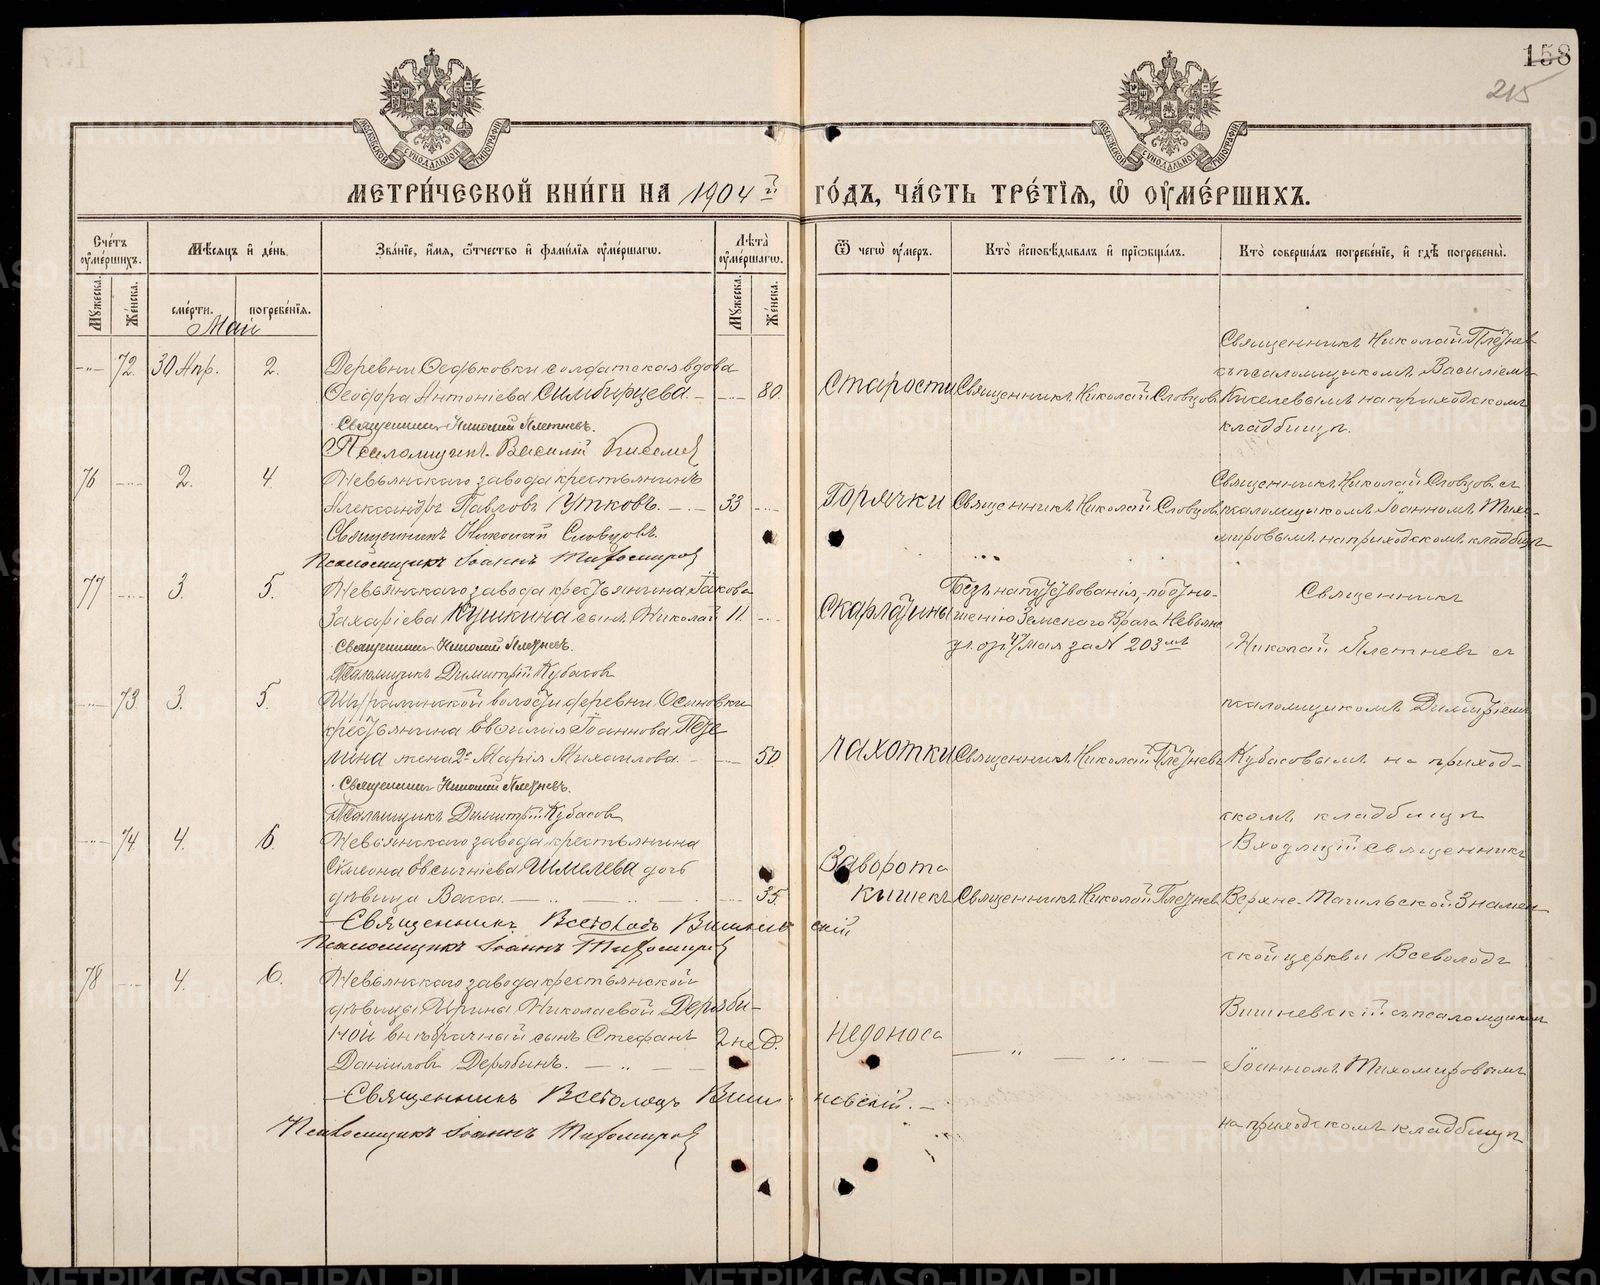 158
215
МОСКОВСКОЙ СѴНОДАЛЬНОЙ ТИПОГРАФІИ
МОСКОВСКОЙ СѴНОДАЛЬНОЙ ТИПОГРАФІИ
МЕТРИ́ЧЕСКОЙ КНИ́ГИ НА 1904 й ГО́ДЪ, ЧА́СТЬ ТРЕ́ТІѦ, Ѡ҆ ОУ҆МЕ́РШИХЪ.
Сче́тъ оумершихъ.
Мѣсѧцъ и де́нь.
Зва́нїе, и҆́мѧ, ѻ҆́тчество и фами́лїѧ оумершагѡ.
Лѣта̀ оумершагѡ.
Ѿ чегѡ̀ оу́меръ.
Кто̀ и҆сповѣ́дывалъ и прїѡбща́лъ.
Кто̀ соверша́лъ погребе́нїе, и гдѣ̀ погребены̀.
Мꙋжеска.
Же́нска.
сме́рти.
погребе́нїѧ.
Мꙋжеска.
Же́нска.
Май
72 30 Апр. 2.
Деревни Ѳедьковки солдатская вдова
Ѳеодора Антоніева Симбирцева. 80
Священникъ Николай Плетневъ.
Псаломщикъ Василій Киселев
Старости
Священникъ Николай Словцовъ
Священникъ Николай Плетнев
съ псаломщикомъ Василіемъ
Киселевымъ на приходскомъ
кладбищѣ.
76 2. 4
Невьянскаго завода крестьянинъ
Александръ Павловъ Утковъ. 33
Священникъ Николай Словцовъ.
Псаломщикъ Іоаннъ Тихомиров
Горячки
Священникъ Николай Словцовъ
Священникъ Николай Словцов съ
псаломщикомъ Іоанномъ Тихо-
мировымъ на приходскомъ кладбищѣ
77 3. 5.
Невьянскаго завода крестьянина Іакова
Захаріева Кушкина сынъ Николай 11.
Священникъ Николай Плетневъ.
Псаломщикъ Димитрій Кубасов
Скарлатины
Безъ напутствованія, по отно-
шенію Земскаго Врача Невьянс
отъ 4 мая за N 203 мъ
Священникъ
Николай Плетневъ съ
псаломщикомъ Димитріемъ
Кубасовымъ на приход-
скомъ кладбищѣ
73 3. 5.
Шуралинской волости деревни Осиновки
крестьянина Евѳимія Іоаннова
жена 2я Марія Михаилова. 50
Священникъ Николай Плетневъ.
Псаломщикъ Димитрій Кубасов
Чахотки
Священникъ Николай Плетневъ
74 4. 6.
Невьянскаго завода крестьянина
Симеона Евсигніева Шмелева дочь
дѣвица Васса. 35.
Священникъ Всеволодъ Вишнев скій
Псаломщикъ Іоаннъ Тихомиров
Заворота
кишекъ
Священникъ Николай Плетневъ
Входящій священникъ
Верхне-Тагильской Знамен
ской церкви Всеволодъ
Вишневскій съ псаломщикомъ
Іоанномъ Тихомировымъ
на приходскомъ кладбищѣ
78 4. 6.
Невьянскаго завода крестьянской
дѣвицы Ирины Николаевой Деряби-
ной внѣбрачный сынъ Стефанъ 2 нед.
Даніиловъ Дерябинъ.
Священникъ Всеволодъ Виш невскій.
Псаломщикъ Іоаннъ Тихомиров
Недоноса
METRIKI.GASO-URAL.RU